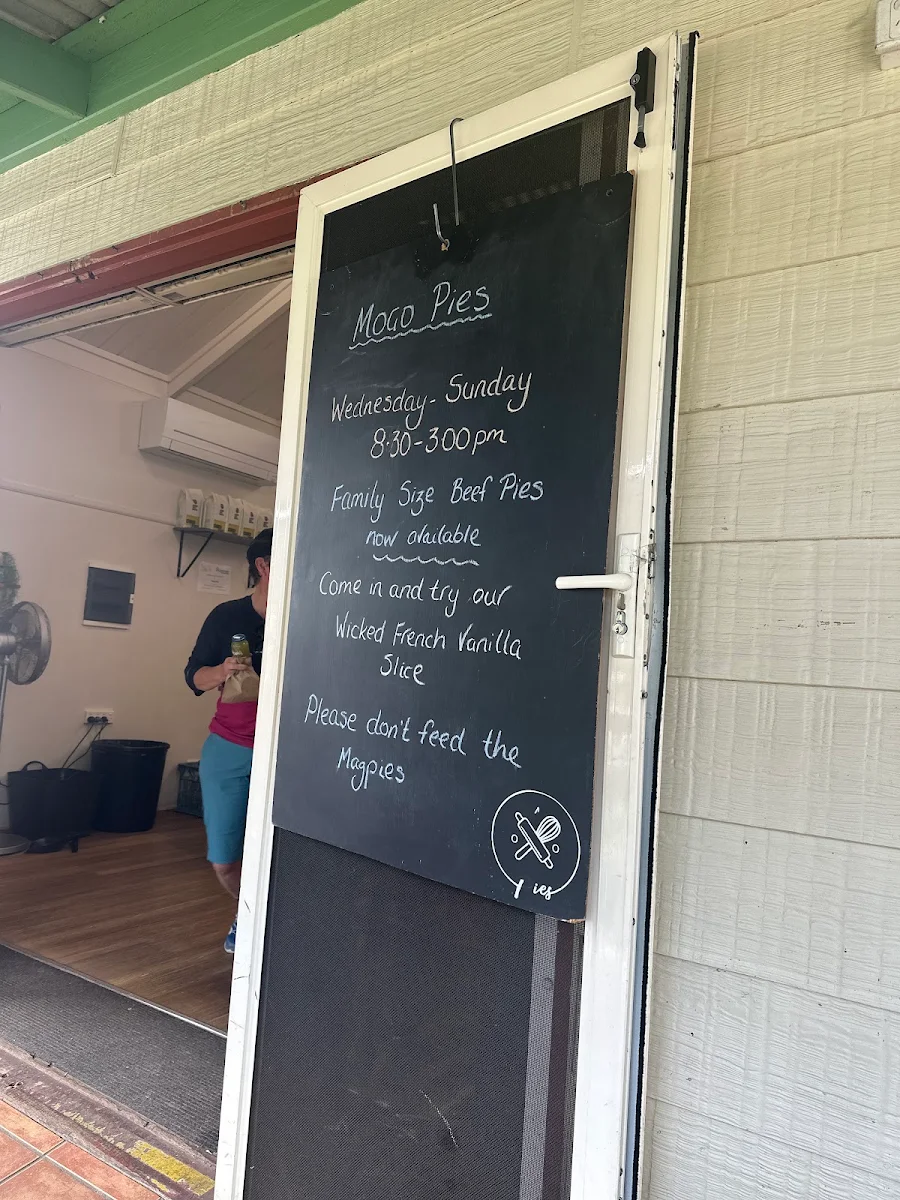 Mogo Pies
Wednesday - Sunday
8:30-3:00pm
Family Size Beef Pies
now available
Come in and try our
Wicked French Vanilla
Slice
Please don't feed the
Magpies
ies